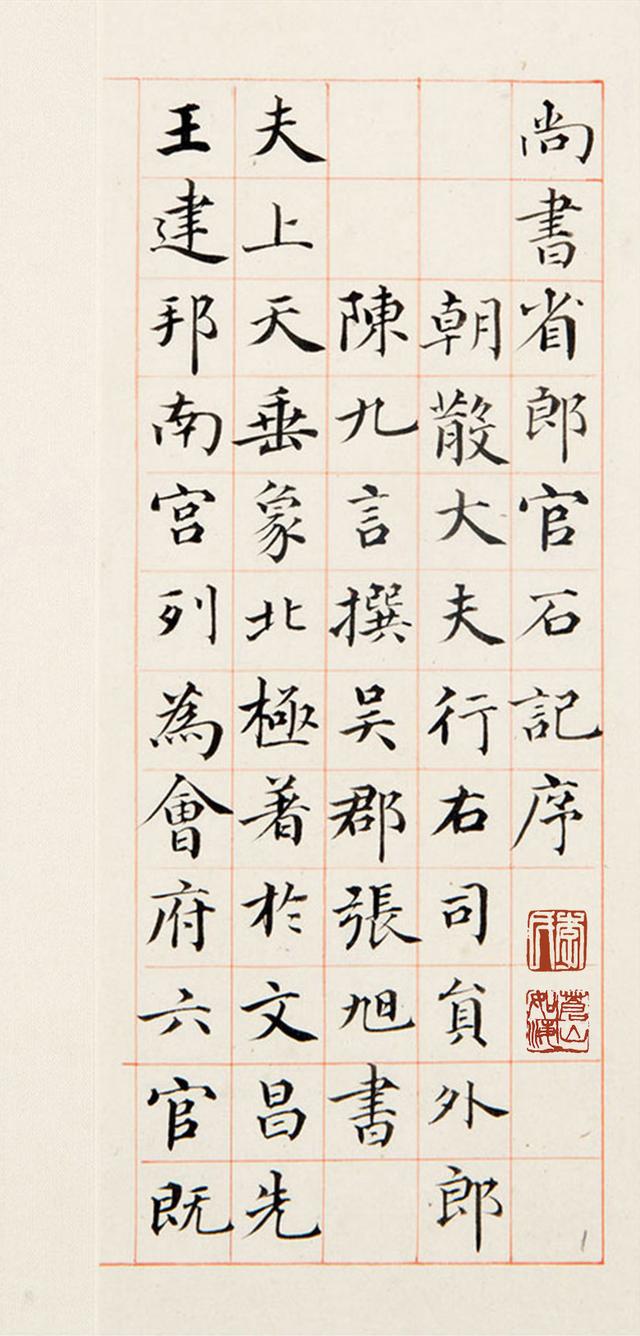 尚書省郎官石記序
朝散大夫行右司員外郎
陳九言撰吴郡張旭書
夫上天垂象北極著於文昌先
王建邦南宮列為會府六官既
蒼山如海